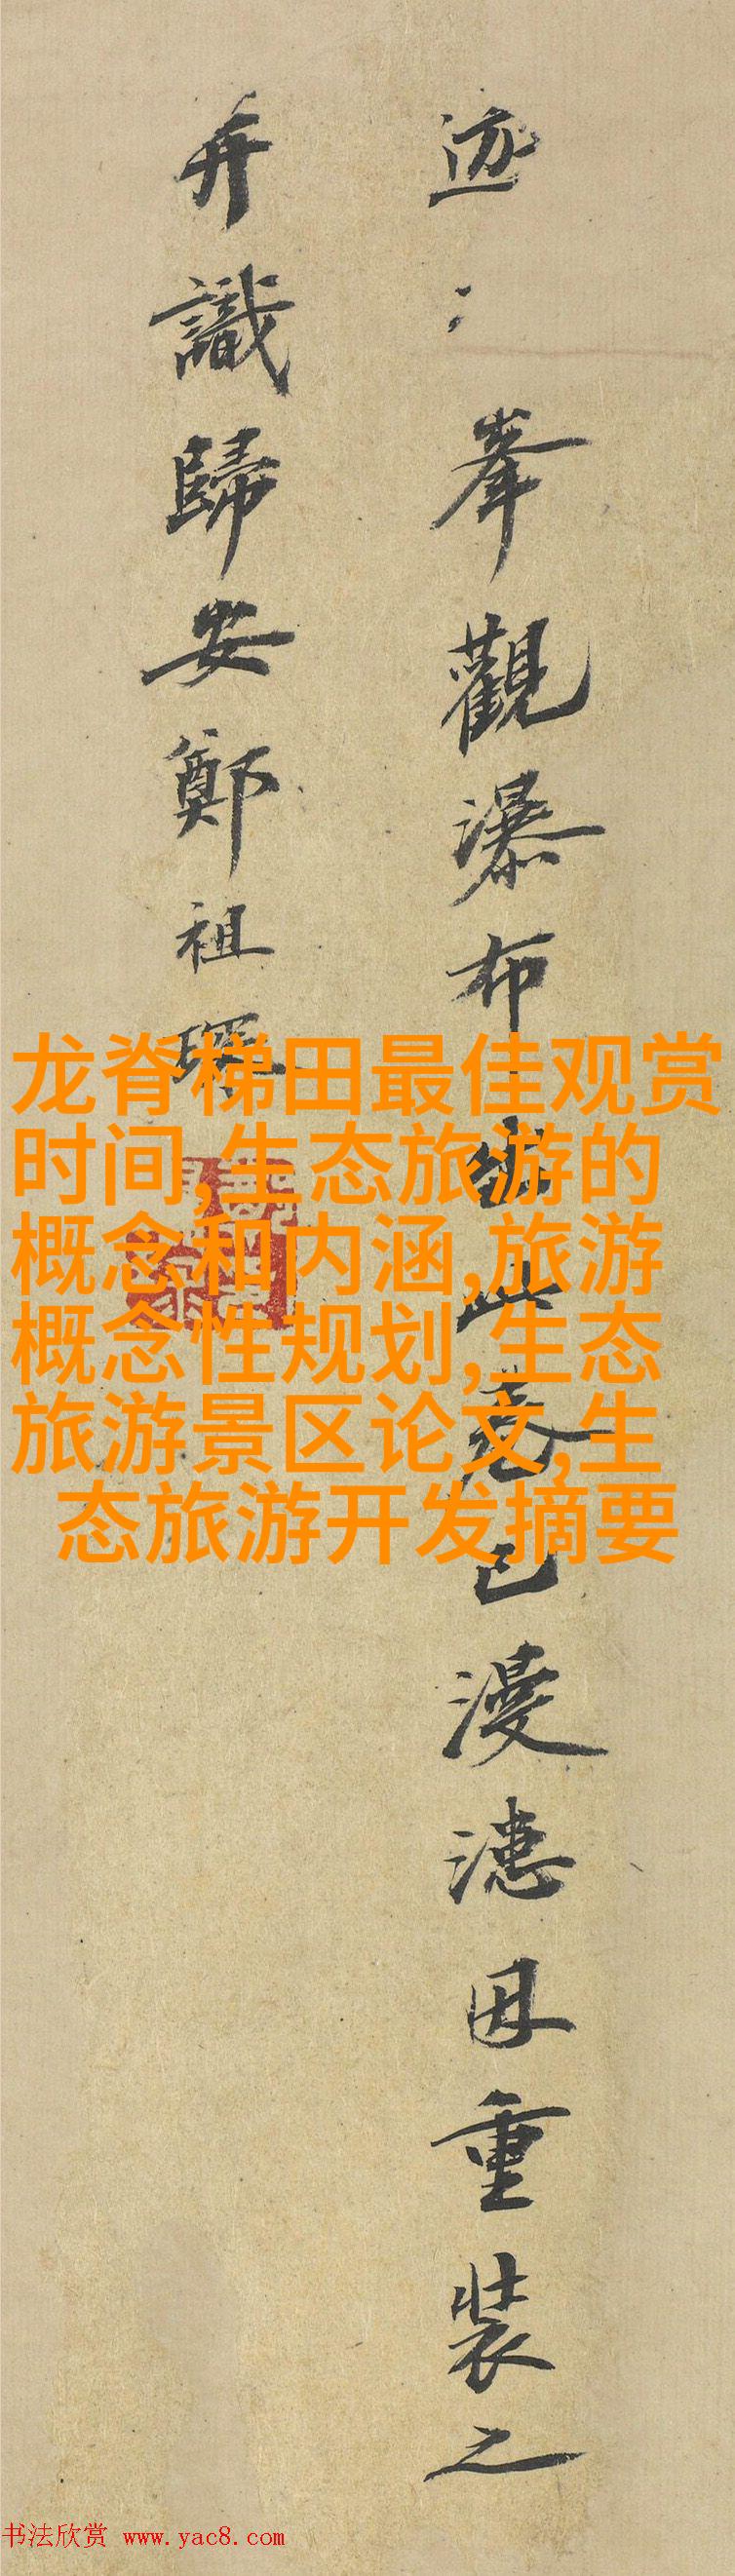 迹〻峯觀瀑布
此卷已漫漶因重裝之
并識歸安鄭祖琛
龙脊梯田最佳观赏
时间,生态旅游的
概念和内涵,旅游
概念性规划,生态
旅游景区论文,生
态旅游开发摘要
书法欣赏 www.yac8.com